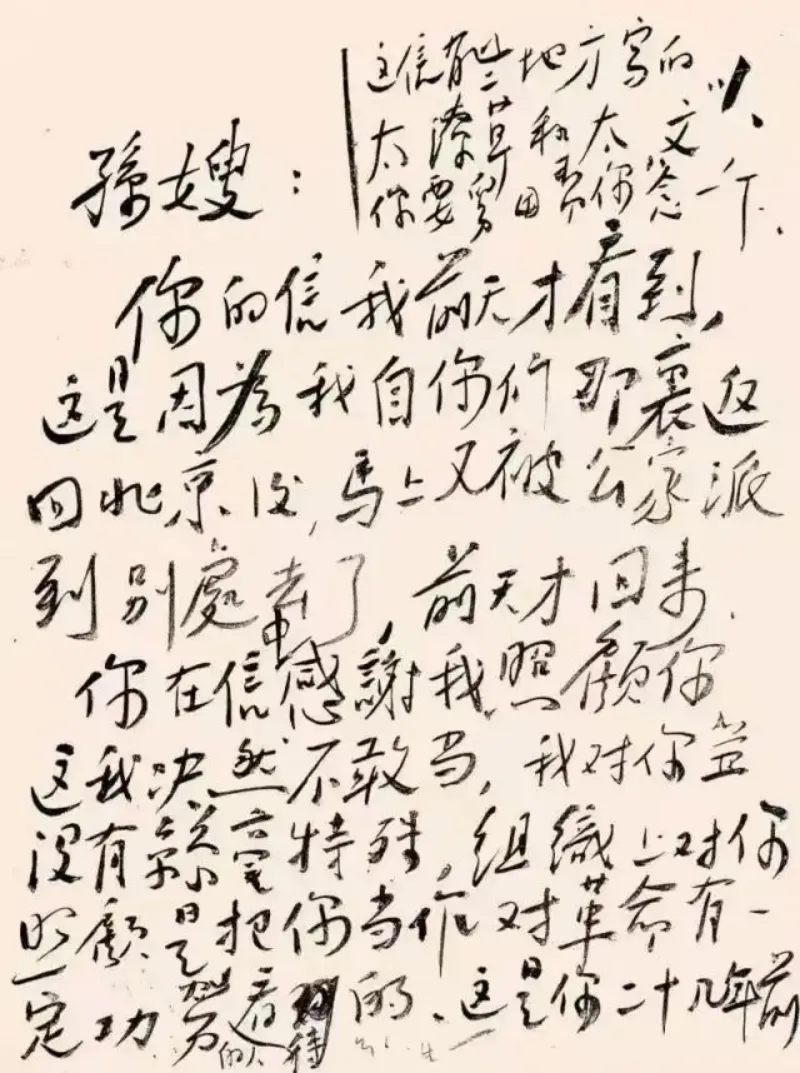 孫嫂：
这信有些地方写的
太潦草和太文，
你要舅田野你念一下.
你的信我前天才看到，
这是因為我自你们那裏返
回北京後，馬上又被公家派
到别處去了，前天才回来.
你在信中感謝我照顧你
这我决然不敢当，我对你並
没有絲毫特殊，組織上对你
照顧是把你当作对革命有一
定功劳的人看待的、这是你二十几年前